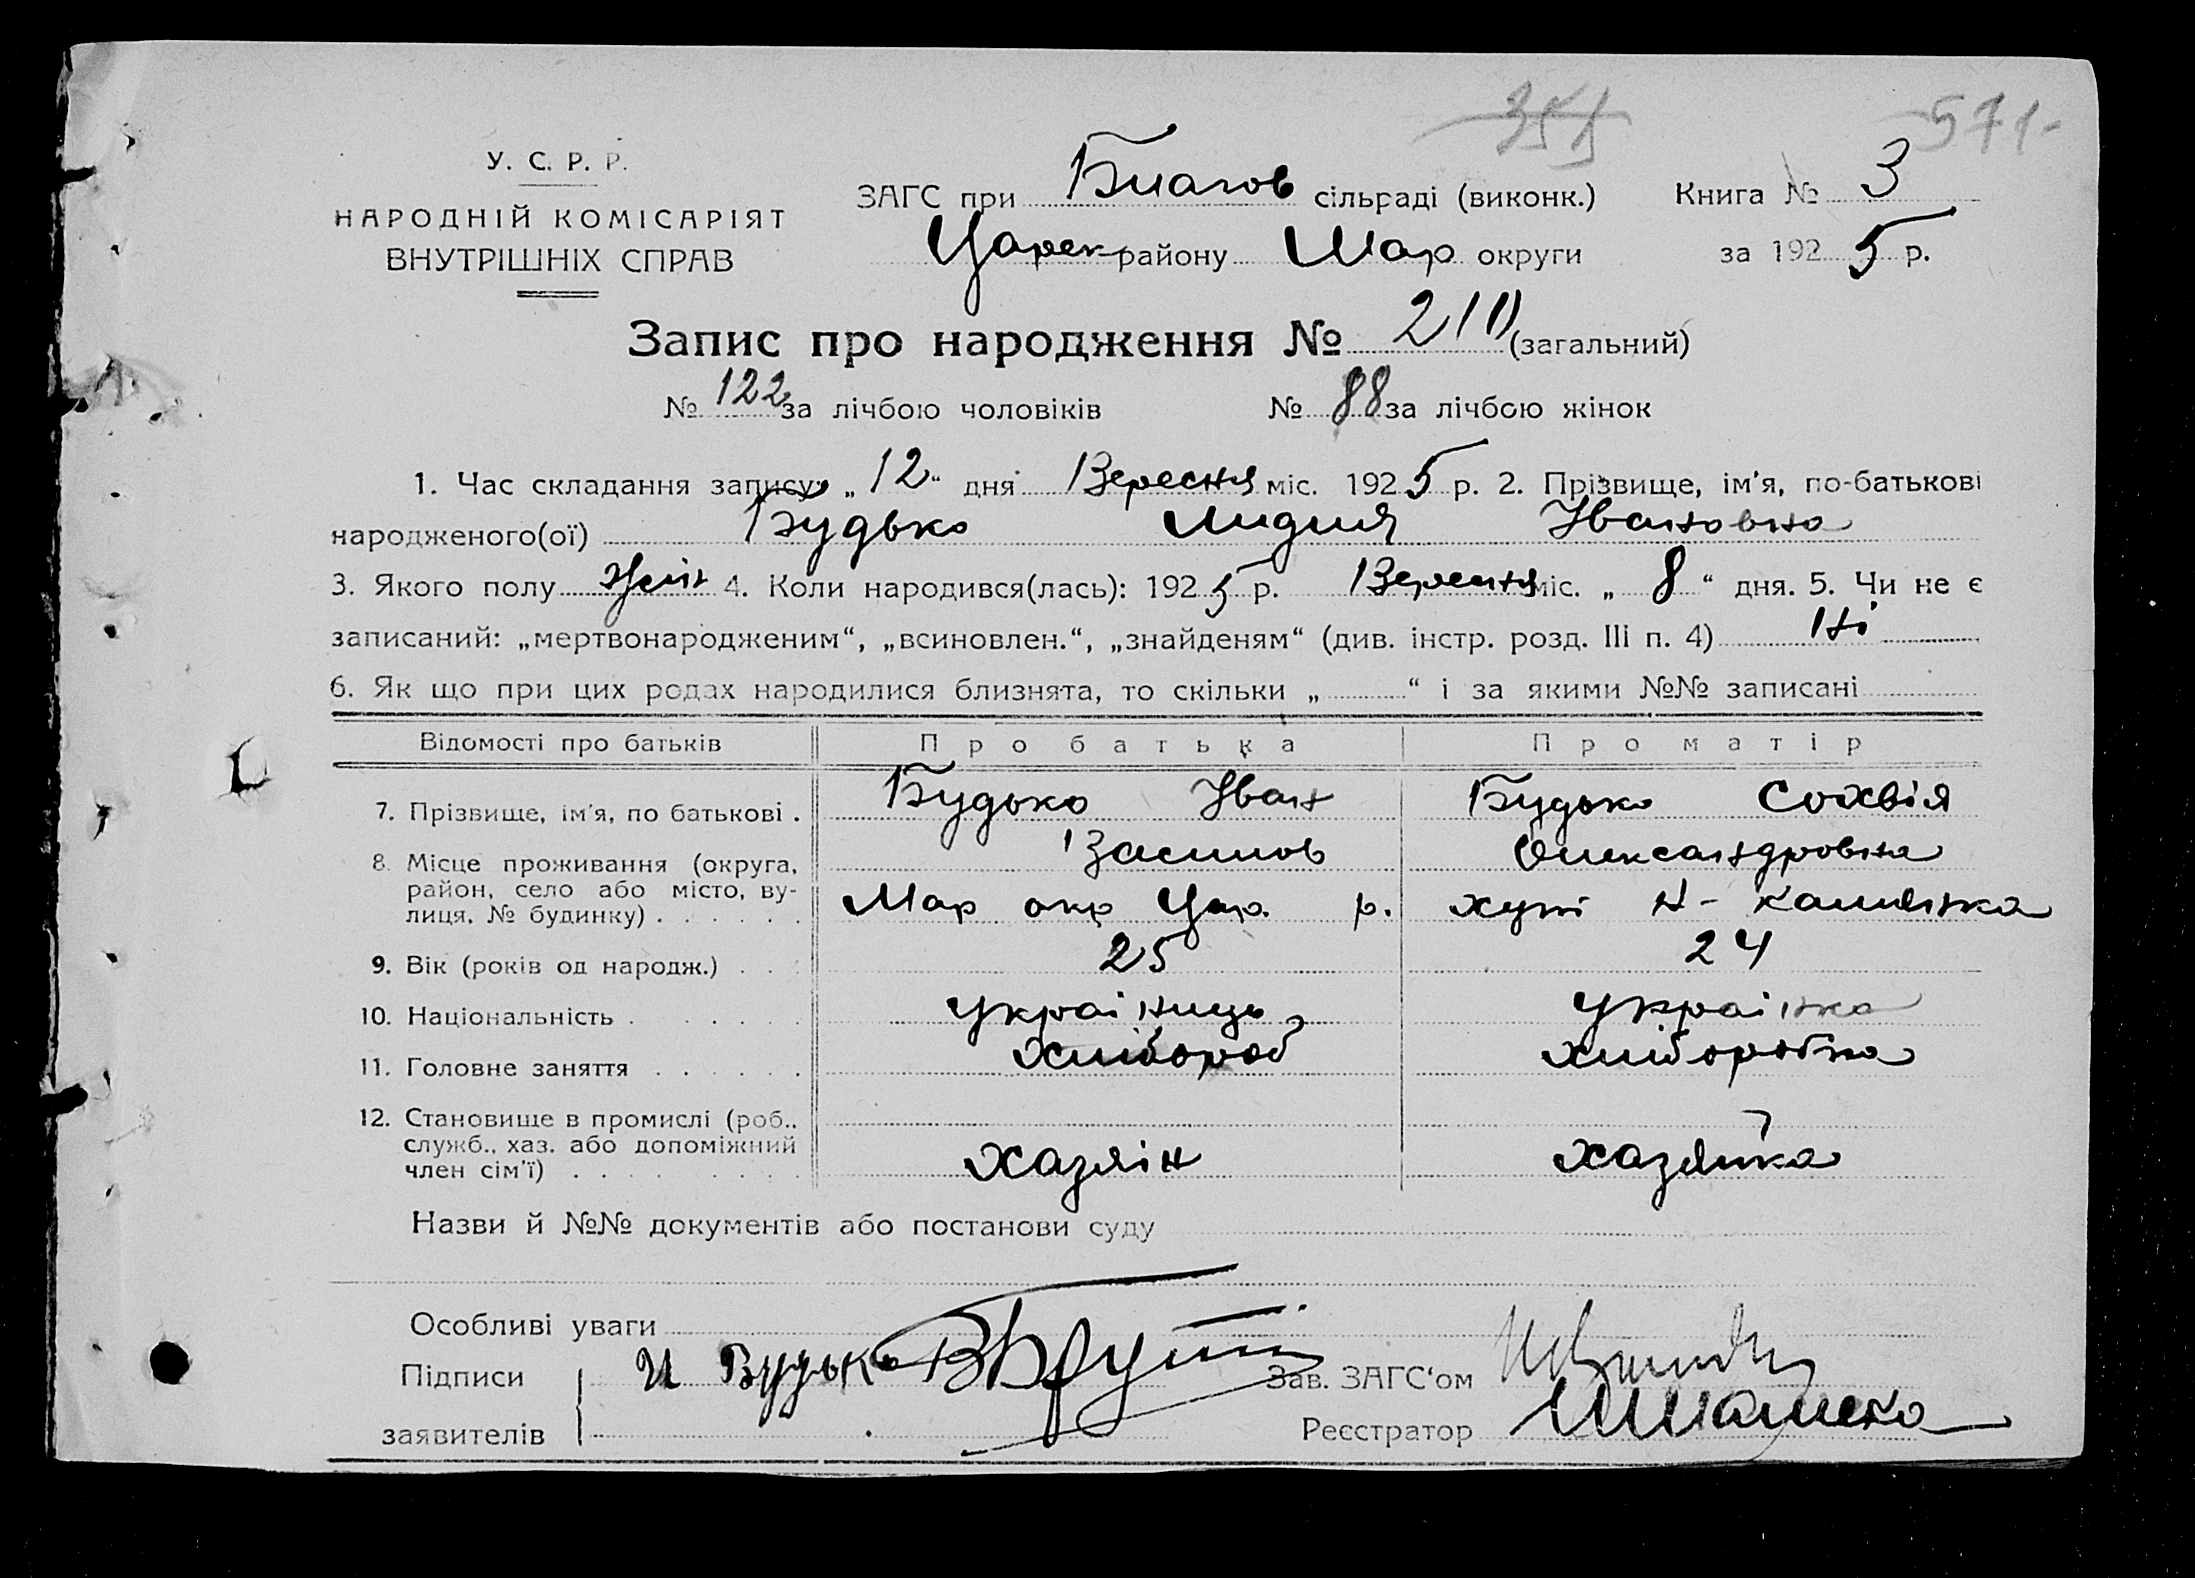 351 571-
У. С. Р. Р.
НАРОДНІЙ КОМІСАРІЯТ
ВНУТРІШНІХ СПРАВ
ЗАГС при Благов сільраді (виконк.) Книга № 3
Царек району Мар округи за 1925 р.
Запис про народження № 210 (загальний)
№ 122 за лічбою чоловіків № 88 за лічбою жінок
1. Час складання запису: „12“ дня Вересня міс. 1925 р. 2. Прізвище, ім'я, по-батькові
народженого(ої) Будько Лидия Івановна
3. Якого полу жін 4. Коли народився(лась): 1925 р. Вересня міс. „8“ дня. 5. Чи не є
записаний: „мертвонародженим“, „всиновлен.“, „знайденям“ (див. інстр. розд. III п. 4) Ні
6. Як що при цих родах народилися близнята, то скільки „ “ і за якими №№ записані
Відомості про батьків Про батька Про матір
7. Прізвище, ім'я, по батькові . Будько Іван Будько Софвія
Василов Олександровна
8. Місце проживання (округа, район, село або місто, вулиця, № будинку) . . . . . . Мар окр Цар. р. хут Н-Камлянка
9. Вік (років од народж.) . . . 25 24
10. Національність . . . . . . україниць українка
11. Головне заняття . . . . . . хлібороб хліборобка
12. Становище в промислі (роб., служб., хаз. або допоміжний член сім'ї) . . . . . . . . хазяїн хазяйка
Назви й №№ документів або постанови суду
Особливі уваги
Підписи И Будько Зав. ЗАГС'ом
заявителів Реєстратор